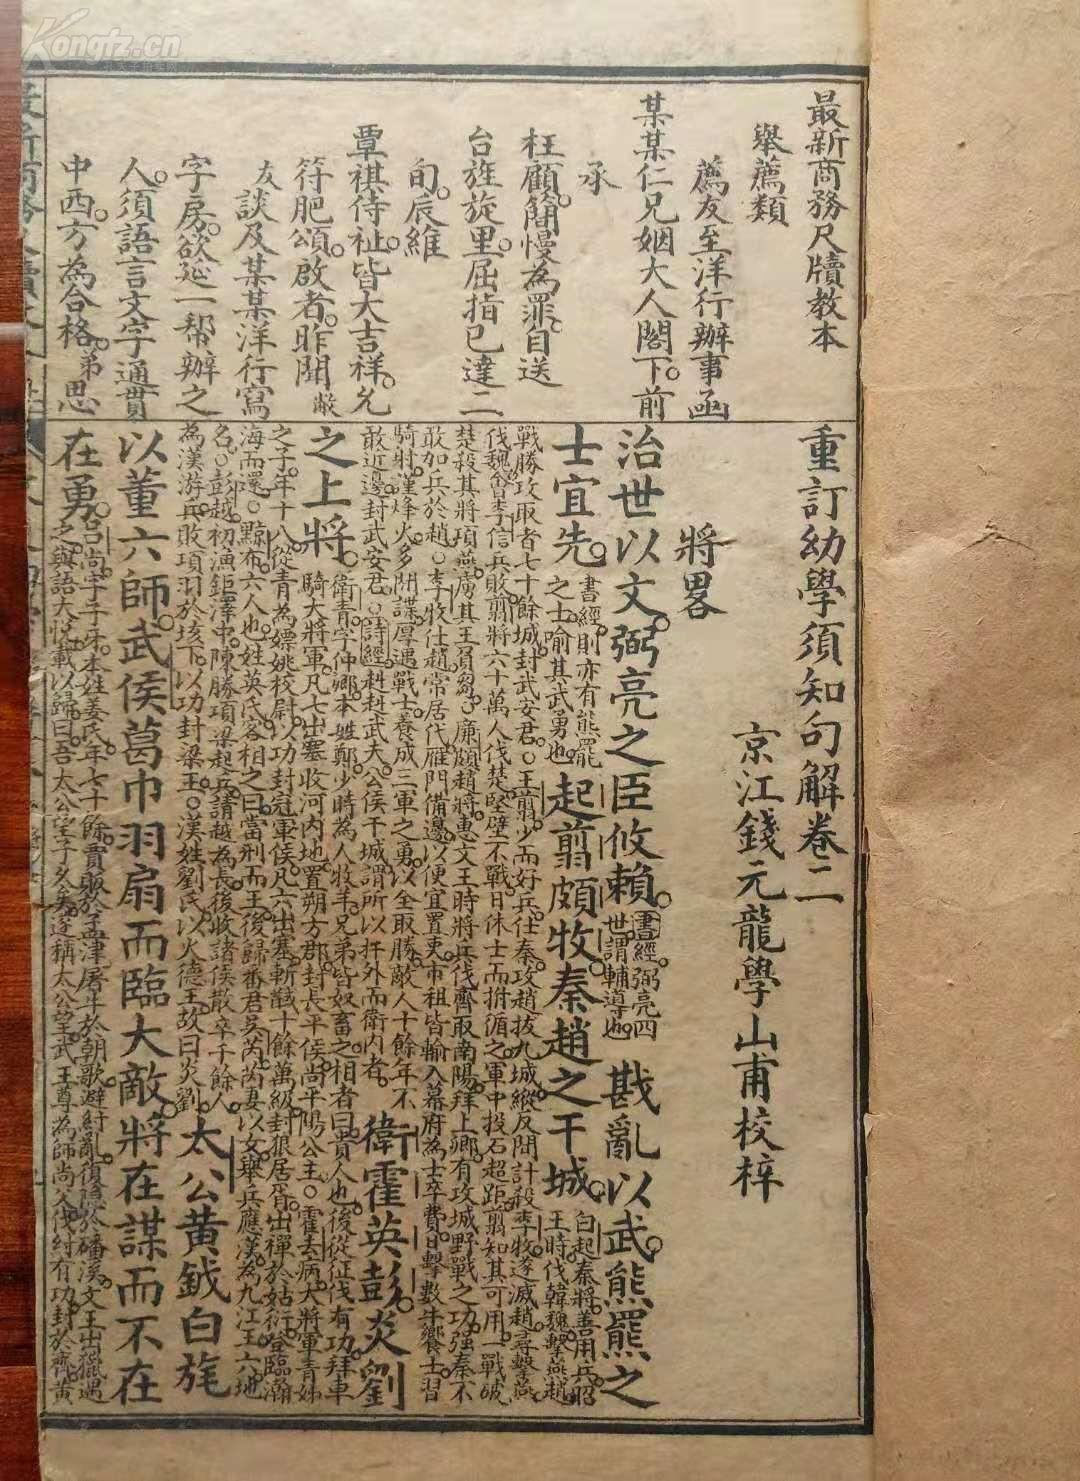 最新商務尺牘教本
舉薦類
薦友至洋行辦事函
某某仁兄姻大人閣下。前
承
枉顧。簡慢為罪。自送
台旌旋里。屈指已達二
旬。辰維
覃祺侍祉。皆大吉祥。允
符肥頌。啟者。昨聞敝
友談及某某洋行寫
字房。欲延一幫辦之
人。須語言文字。通貫
中西。方為合格。弟思
重訂幼學須知句解卷二
京江錢元龍學山甫校梓
將畧
治世以文。弼亮之臣攸賴。書經弼亮四世謂輔導也 戡亂以武。熊羆之
士宜先。書經則亦有熊羆之士喻其武勇也 起翦頗牧。秦趙之干城。白起秦將善用兵昭王時伐韓魏擊燕趙
戰勝攻取者七十餘城封武安君。○王翦少而好兵仕秦攻趙拔九城縱反間計殺李牧遂滅趙尋擊燕
伐魏會李信兵敗翦將六十萬人伐楚堅壁不戰日休士而拊循之軍中投石超距翦知其可用一戰破
楚殺其將項燕虜其王負芻。廉頗趙將惠文王時將兵伐齊取南陽拜上卿有攻城野戰之功強秦不
敢加兵於趙。○李牧仕趙常居代雁門備邊以便宜置吏市租皆輸入幕府為士卒費日擊數牛饗士習
騎射謹烽火多間諜厚遇戰士養成三軍之勇以全取勝敵人十餘年不
敢近邊封武安君。○詩經赳赳武夫公侯干城謂所以扞外而衛內者 衛霍英彭。炎劉
之上將。衛青字仲卿本姓鄭少時為人牧羊兄弟皆奴畜之相者曰貴人也後從征伐有功拜車
騎大將軍凡七出塞收河內地置朔方郡封長平侯尚平陽公主。○霍去病大將軍青姊
之子年十八從青為嫖姚校尉以功封冠軍侯凡六出塞斬馘十餘萬級封狼居胥出禪於姑衍登臨瀚
海而還。○黥布六人也姓英氏客相之曰當刑而王後歸番君吳芮芮妻以女舉兵應漢為九江王六地
名。○彭越初漁鉅澤中陳勝項梁起兵請越為長後收諸侯散卒千餘人
為漢游兵敗項羽於垓下以功封梁王。○漢姓劉氏以火德王故曰炎劉 太公黃鉞白旄
以董六師。武侯葛巾羽扇而臨大敵。將在謀而不在
在勇。呂尚字子牙本姓姜氏年七十餘賣販於孟津屠牛於朝歌避紂亂復隱於磻溪文王出獵遇
之與語大悅載以歸曰吾太公望子久矣遂稱太公望武王尊為師尚父伐紂有功封於齊黃